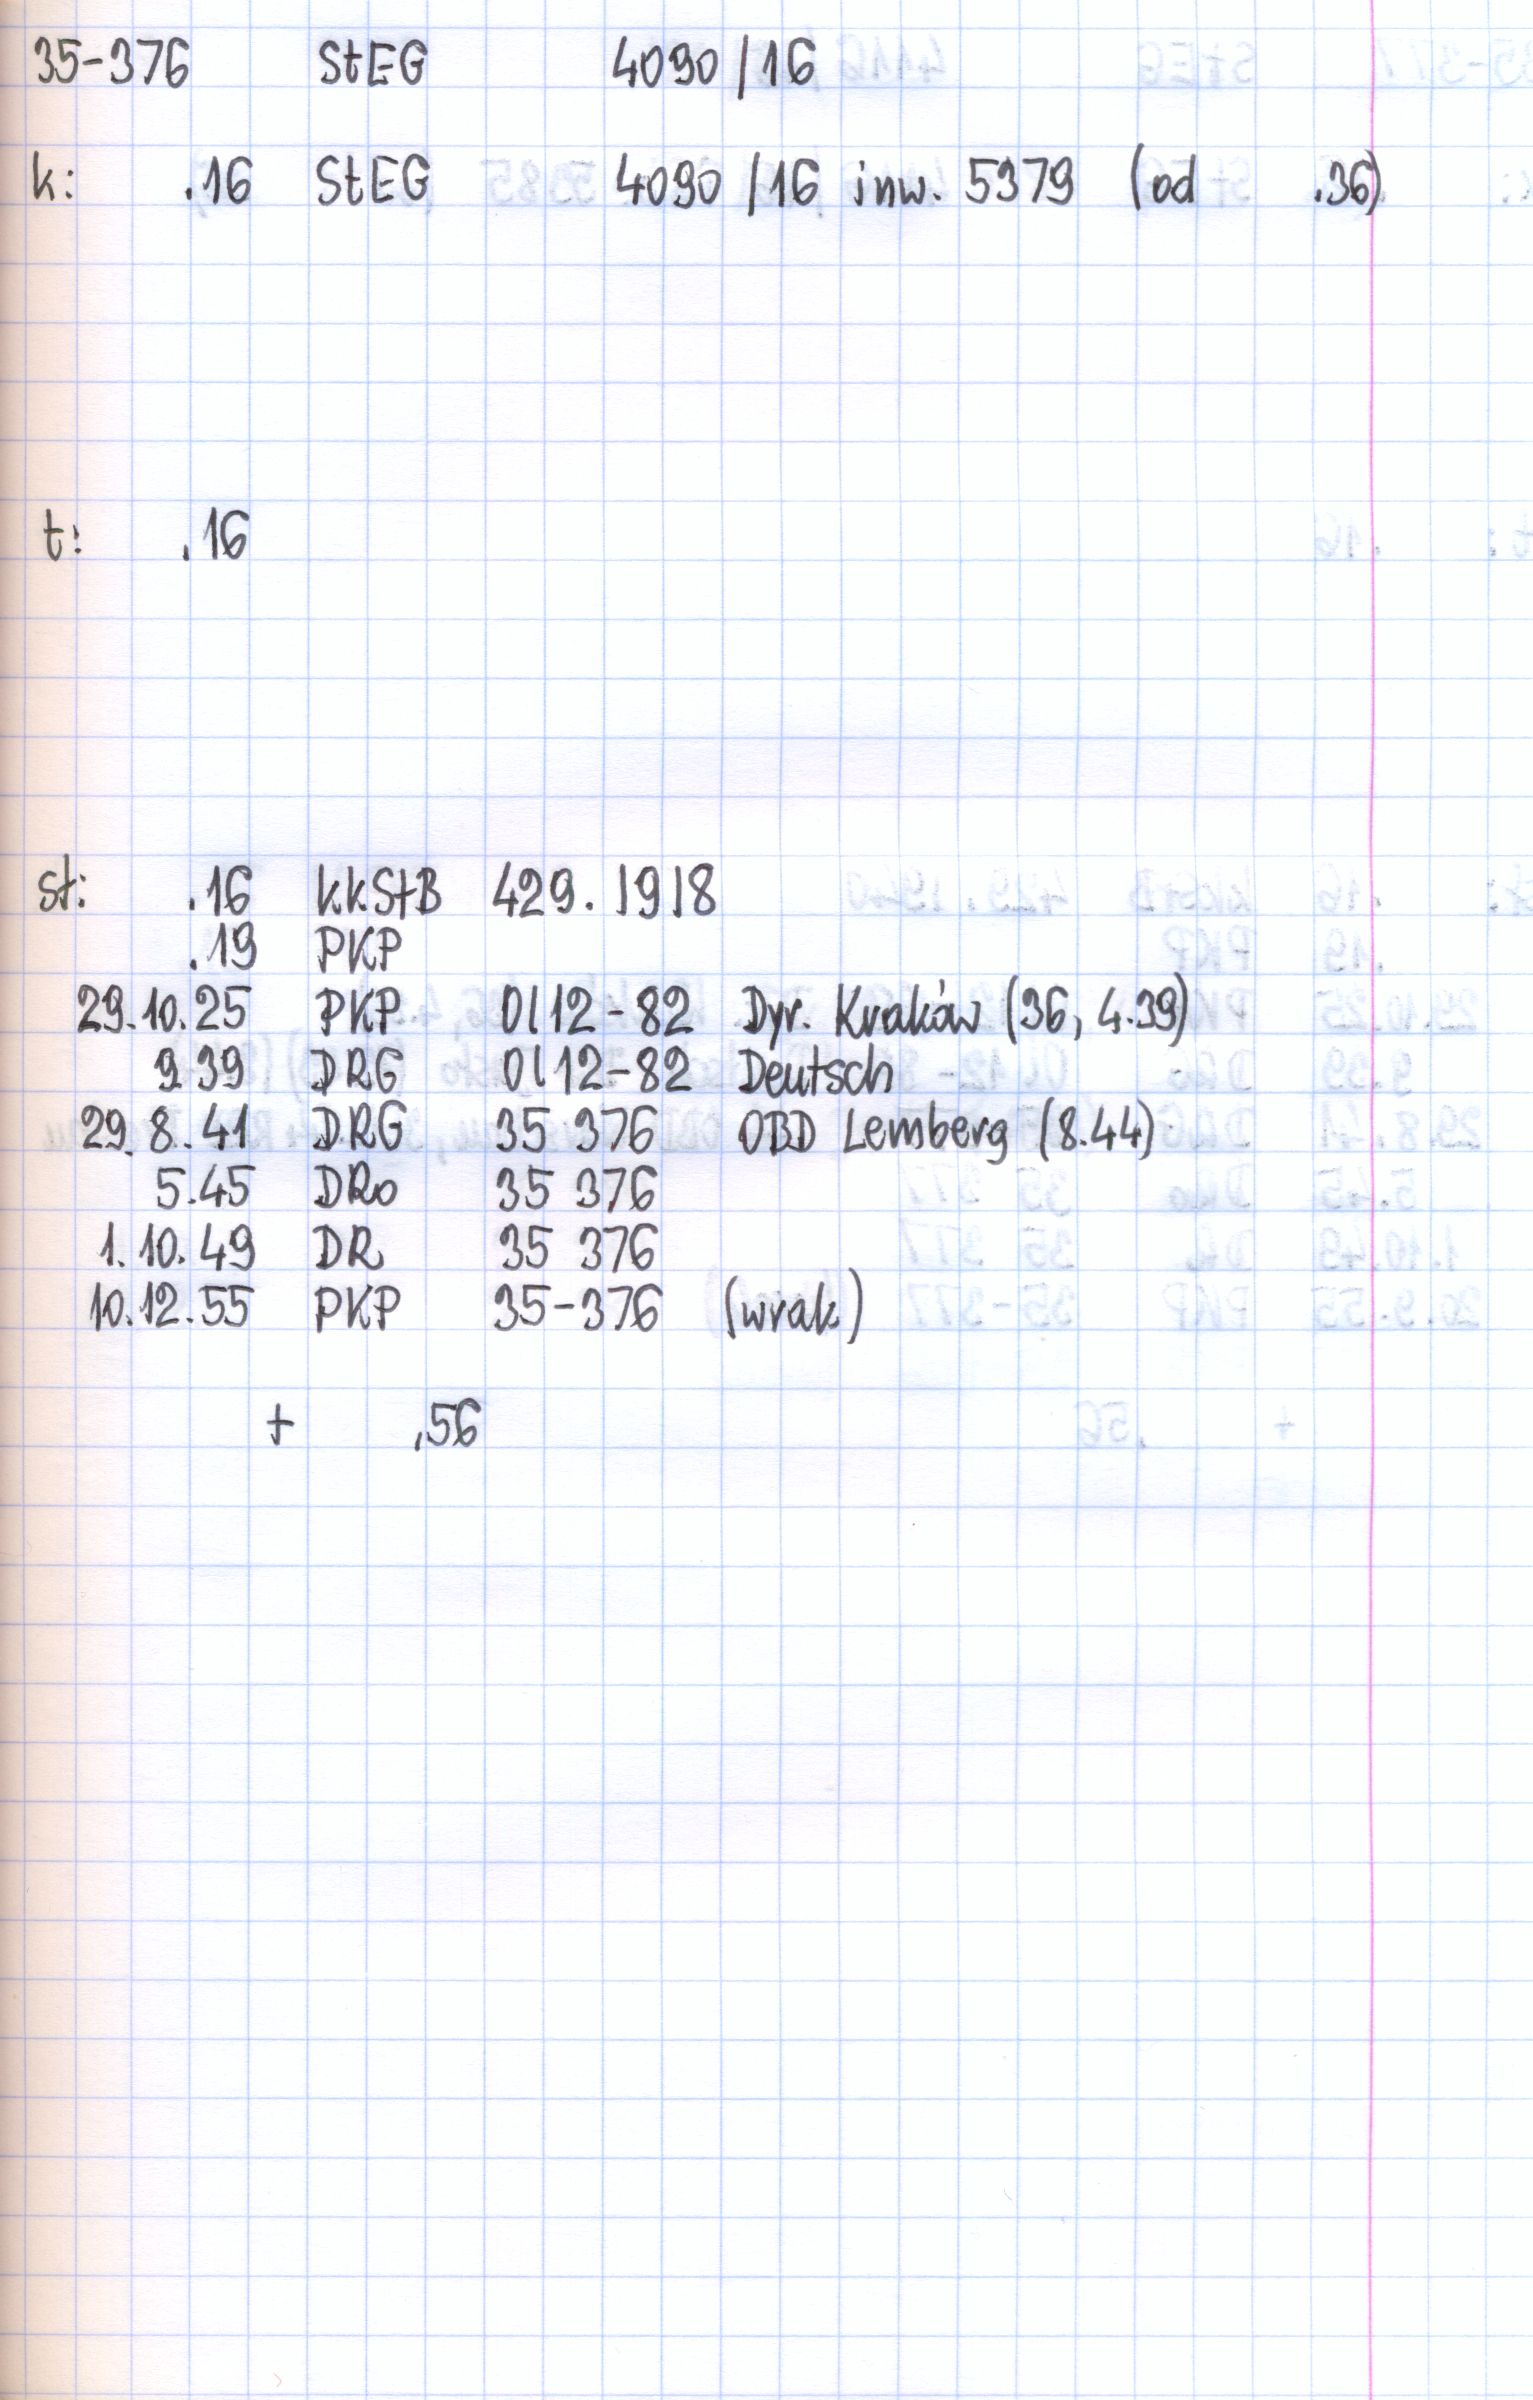 35-376 StEG 4090/16
k: .16 StEG 4090/16 inw. 5379 (od .36)
t: .16
st: .16 kkStB 429.1918
.19 PKP
29.10.25 PKP Ol12-82 Dyr. Kraków (36, 4.39)
9.39 DRG Ol12-82 Deutsch
29.8.41 DRG 35 376 OBD Lemberg (8.44)
5.45 DRo 35 376
1.10.49 DR 35 376
10.12.55 PKP 35-376 (wrak)
+ .56